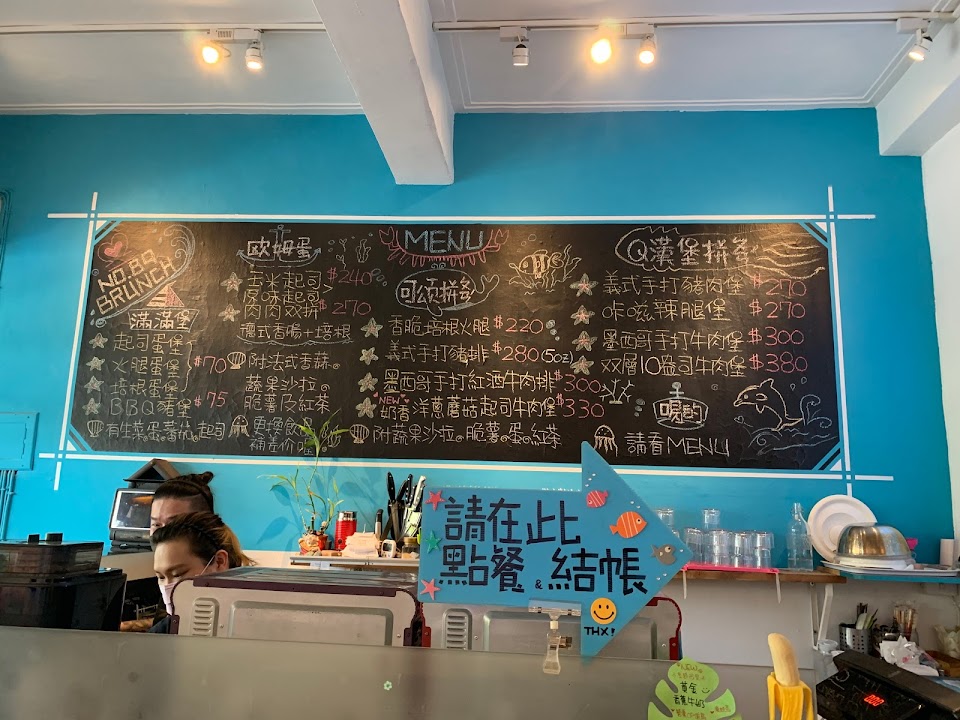 NO.BA
BRUNCH
滿滿堡
起司蛋堡
火腿蛋堡
$70
培根蛋堡
BBQ豬堡 $75
有生菜蛋蕃茄起司
歐姆蛋
玉米起司 $240
原味起司
肉肉雙拼 $270
德式香腸+培根
附法式香蒜。
蔬果沙拉。
脆薯及紅茶
更換飲品
補差价
MENU
可頌拼多
香脆培根火腿 $220
義式手打豬排 $280 (5oz)
墨西哥手打紅酒牛肉排 $300
NEW
奶香洋蔥蘑菇起司牛肉堡 $330
附蔬果沙拉。脆薯。蛋。紅茶
Q漢堡拼多
義式手打豬肉堡 $270
咔滋辣腿堡 $270
墨西哥手打牛肉堡 $300
双層10盎司牛肉堡 $380
喝的
請看MENU
請在此
點餐&結帳
THX!
黃金
香蕉牛奶